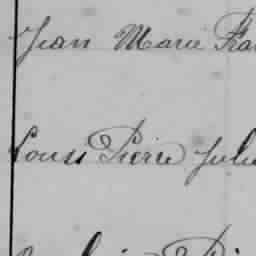 Jean Marie Fra
Louis Pierre Jule